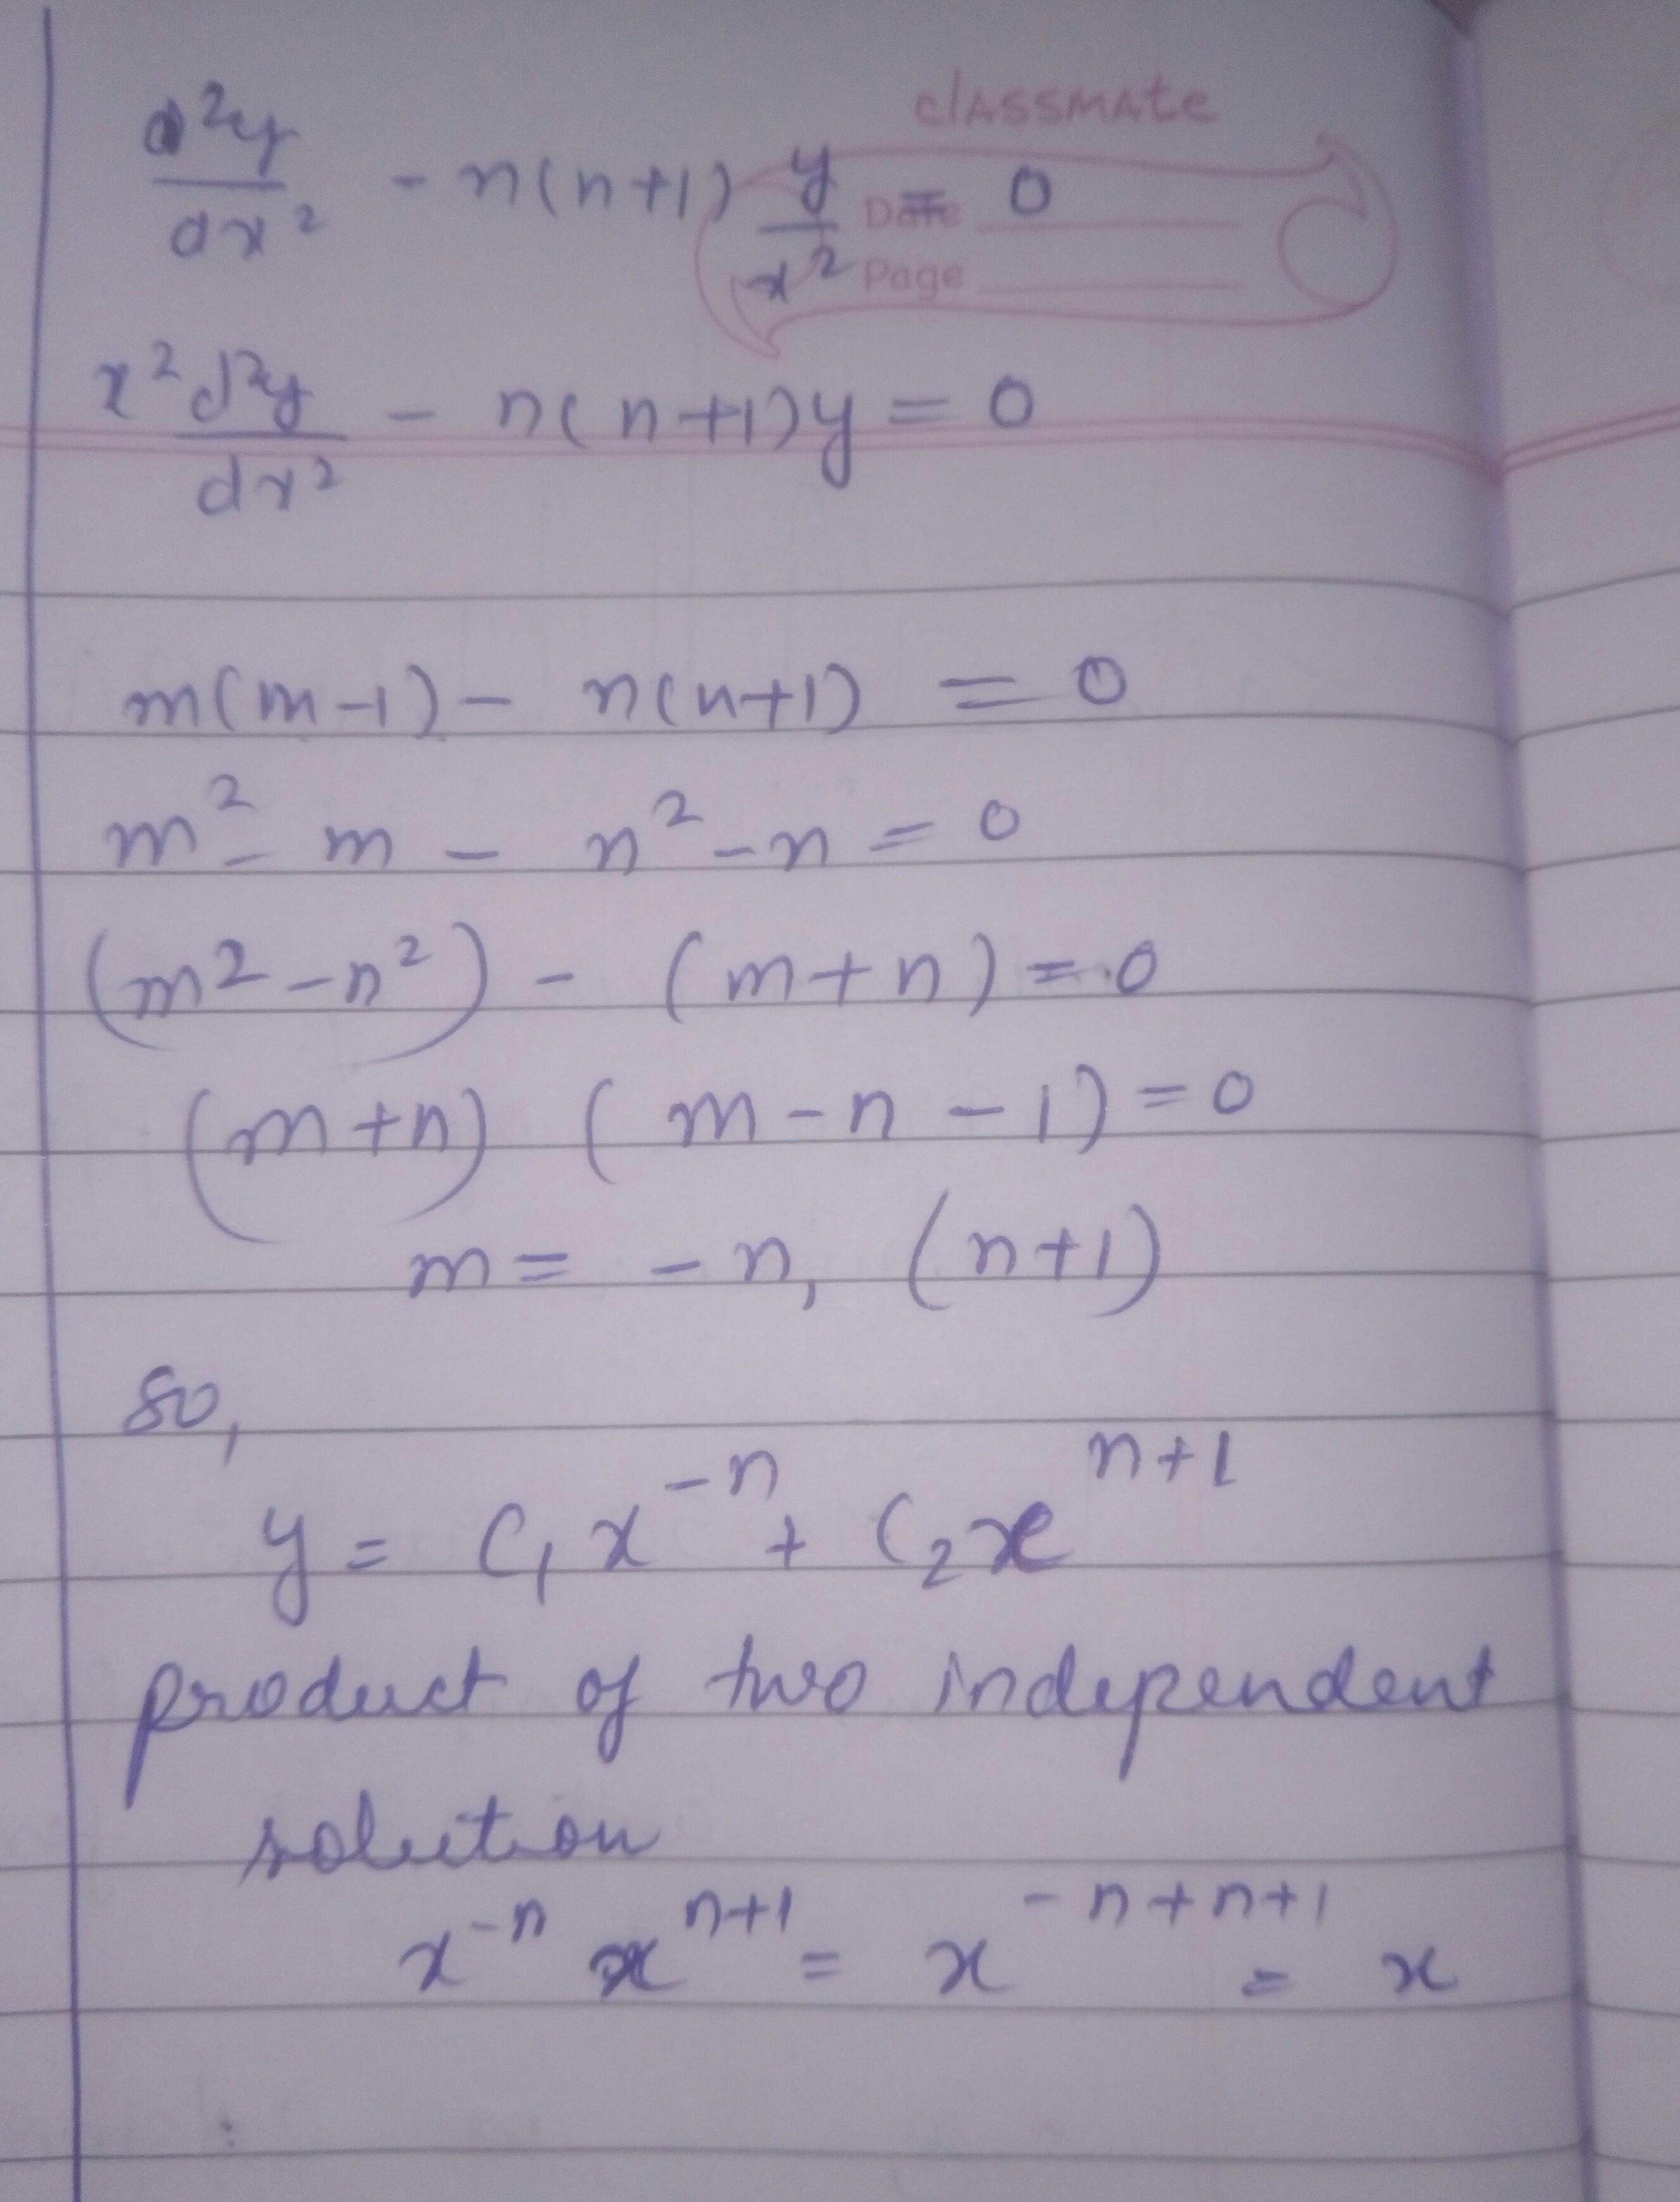 classmate
Date
Page
d²y/dx² - n(n+1) y/x² = 0
x² d²y/dx² - n(n+1)y = 0
m(m-1) - n(n+1) = 0
m² - m - n² - n = 0
(m² - n²) - (m + n) = 0
(m+n) (m - n - 1) = 0
m = - n, (n+1)
so,
y = C₁ x⁻ⁿ + C₂ xⁿ⁺¹
product of two independent
solution
x⁻ⁿ xⁿ⁺¹ = x⁻ⁿ⁺ⁿ⁺¹ = x